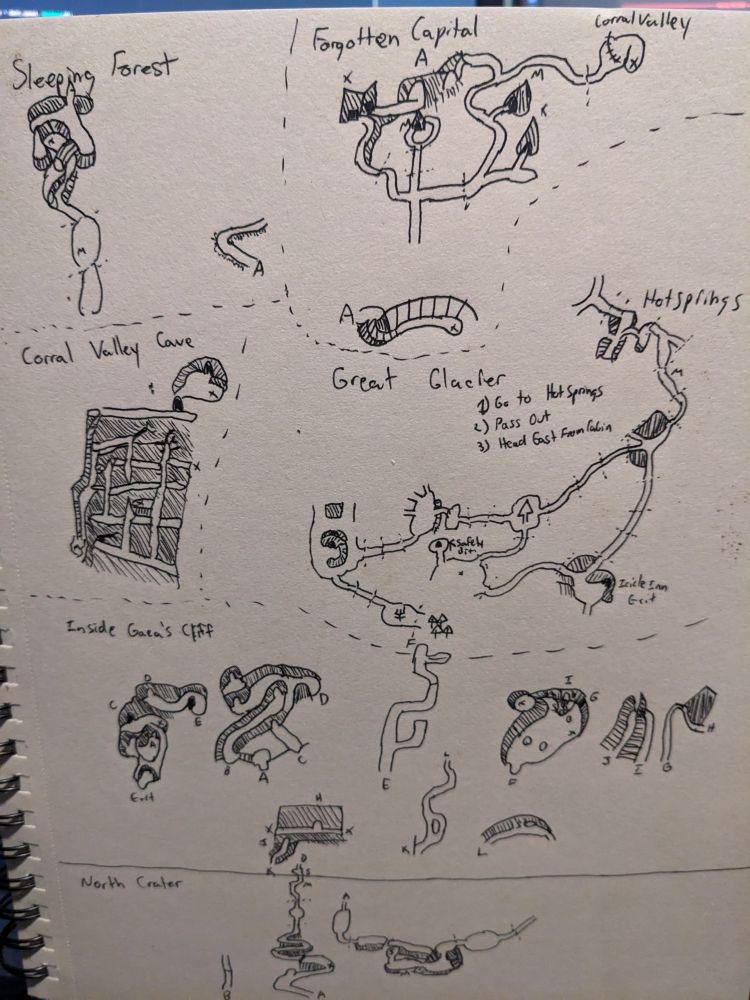 Sleeping Forest
M
A
Forgotten Capital
Corral Valley
A
X
M
M
X
X
A
X
Corral Valley Cave
X
X
Hotsprings
M
Great Glacier
1) Go to Hot Springs
2) Pass Out
3) Head East From Cabin
Icicle Inn
Exit
Inside Gaea's Cliff
D
C
E
Exit
D
B
A
C
F
E
I
G
X
F
J
I
G
H
H
X
X
J
K
L
K
L
North Crater
B
A
A